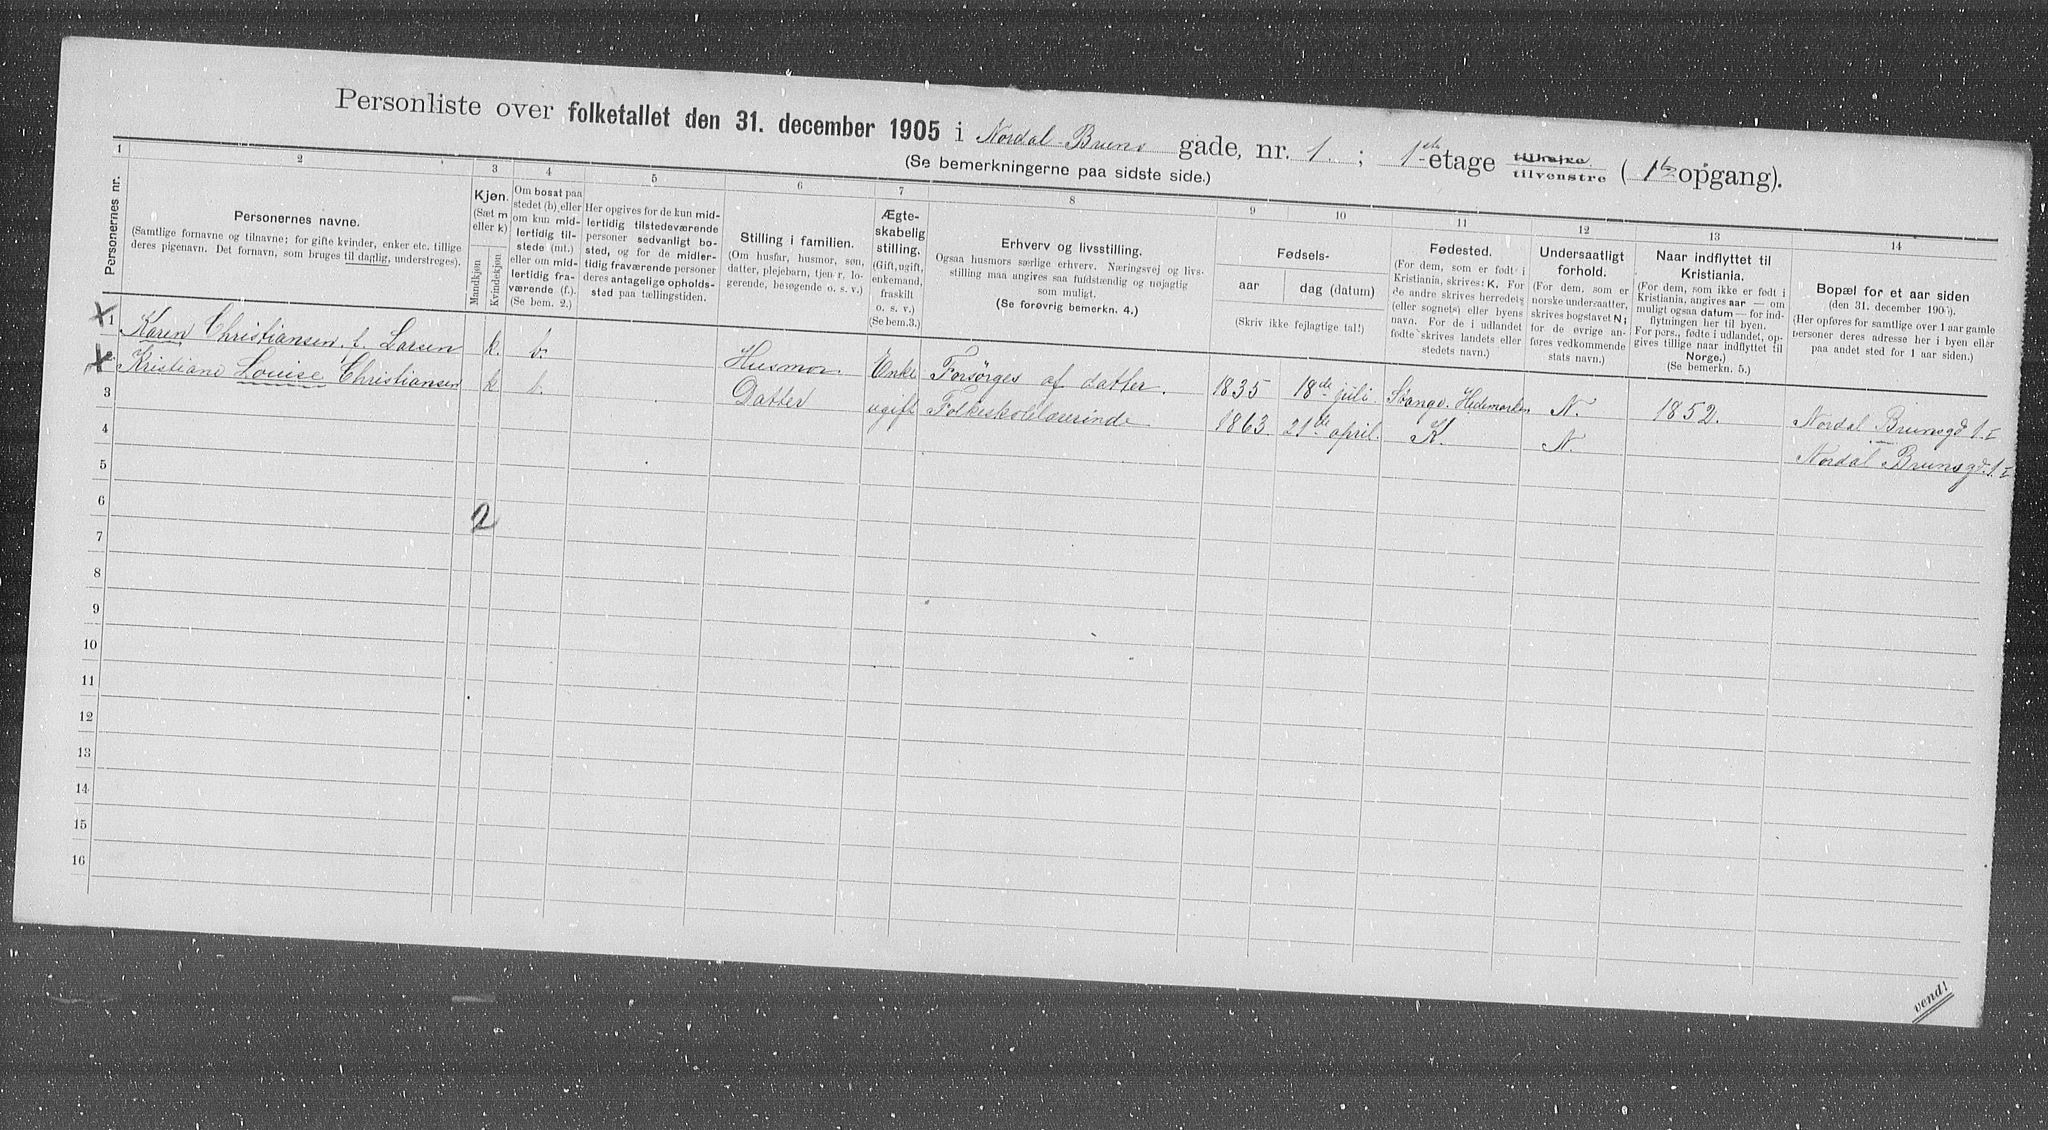 Personliste over folketallet den 31. december 1905 i Nordal-Bruns gade, nr. 1. ; 1ste etage tilhøire tilvenstre ( 1ste opgang).
(Se bemerkningerne paa sidste side.)
1 2 3 4 5 6 7 8 9 10 11 12 13 14
Personernes nr.
Personernes navne.
(Samtlige fornavne og tilnavne; for gifte kvinder, enker etc. tillige
deres pigenavn. Det fornavn, som bruges til daglig, understreges).
Kjøn.
(Sæt m
eller k)
Mandkjøn
Kvindekjøn
Om bosat paa
stedet (b) eller
om kun mid-
lertidig til-
stede (mt.)
eller om mid-
lertidig fra-
værende (f.).
(Se bem. 2.)
Her opgives for de kun mid-
lertidig tilstedeværende
personer sedvanligt bo-
sted, og for de midler-
tidig fraværende personer
deres antagelige opholds-
sted paa tællingstiden.
Stilling i familien.
(Om husfar, husmor, søn,
datter, plejebarn, tjener, lo-
gerende, besøgende o. s. v.)
Ægte-
skabelig
stilling.
(Gift, ugift,
enkemand,
fraskilt
o. s. v.)
(Se bem.3.)
Erhverv og livsstilling.
Ogsaa husmors særlige erhverv. Næringsvej og livs-
stilling maa angives saa fuldstændig og nøjagtig
som muligt.
(Se forøvrig bemerkn. 4.)
Fødsels-
aar
dag (datum)
(Skriv ikke fejlagtige tal!)
Fødested.
(For dem, som er født i
Kristiania, skrives: K. For
de andre skrives herredets
(eller sognets) eller byens
navn. For de i udlandet
fødte skrives landets eller
stedets navn.)
Undersaatligt
forhold.
(For dem, som er
norske undersaatter,
skrives bogstavet N;
for de øvrige an-
føres vedkommende
stats navn.)
Naar indflyttet til
Kristiania.
(For dem, som ikke er født i
Kristiania, angives aar — om
muligt ogsaa datum — for ind-
flytningen her til byen.
For pers., fødte i udlandet, op-
gives tillige naar indflyttet til
Norge.)
(Se bemerkn. 5.)
Bopæl for et aar siden
(den 31. december 1904).
(Her opføres for samtlige over 1 aar gamle
personer deres adresse her i byen eller
paa andet sted for 1 aar siden.)
X 1 Karen Christiansen, f. Larsen k. b. Husmor Enke Forsørges af datter. 1835 18de juli. Stange. Hedemarken N. 1852. Nordal Brunsgd 1. I
X Kristiane Louise Christiansen k b. Datter ugift Folkeskolelærerinde 1863. 21de april. K. N. Nordal Brunsgd. 1. I
3
4
5
6
2
7
8
9
10
11
12
13
14
15
16
vend!